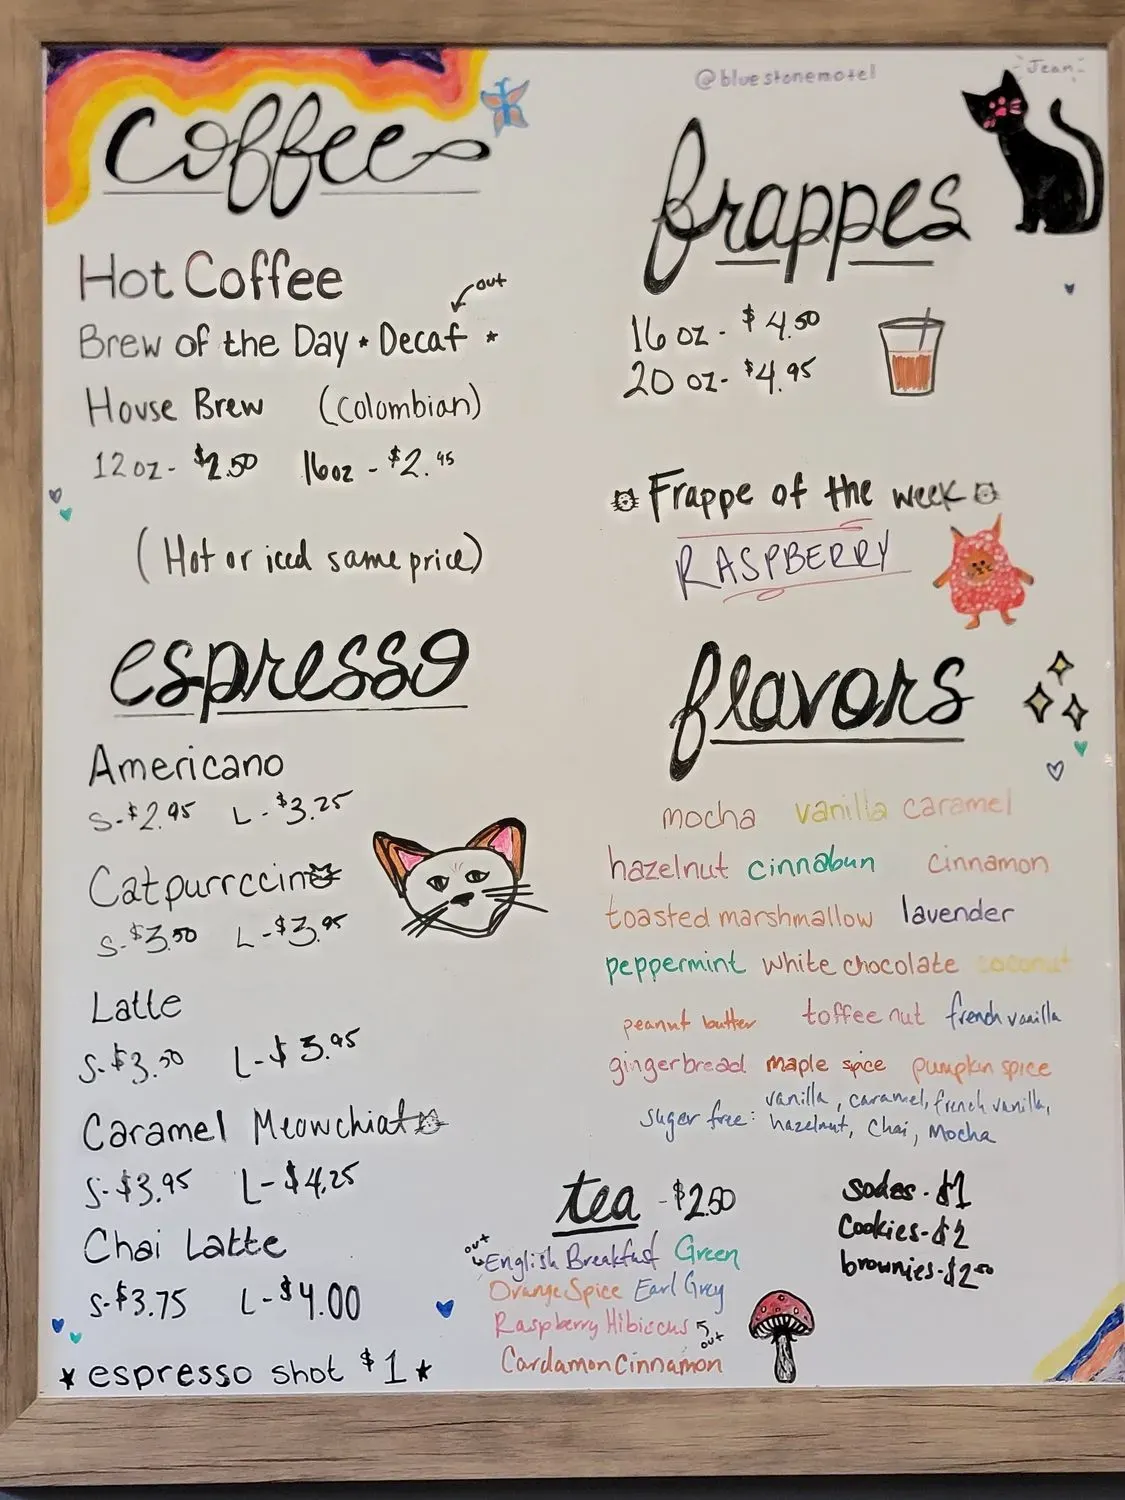 Coffee
Hot Coffee
out
Brew of the Day • Decaf *
House Brew (Colombian)
12oz - $2.50 16oz - $2.95
(Hot or iced same price)
espresso
Americano
S-$2.95 L-$3.25
Catpurrccino
S-$3.50 L-$3.95
Latte
S-$3.50 L-$3.95
Caramel Meowchiato
S-$3.95 L-$4.25
Chai Latte
S-$3.75 L-$4.00
* espresso shot $1 *
@bluestonemotel
Jean
frappes
16 oz - $4.50
20 oz - $4.95
Frappe of the week
RASPBERRY
flavors
mocha vanilla caramel
hazelnut cinnabun cinnamon
toasted marshmallow lavender
peppermint white chocolate coconut
peanut butter toffee nut french vanilla
gingerbread maple spice pumpkin spice
suger free: vanilla, caramel, french vanilla,
hazelnut, Chai, Mocha
tea - $2.50
out
English Breakfast Green
Orange Spice Earl Grey
Raspberry Hibiscus
out
Cardamon Cinnamon
sodas - $1
Cookies - $2
brownies - $2.50